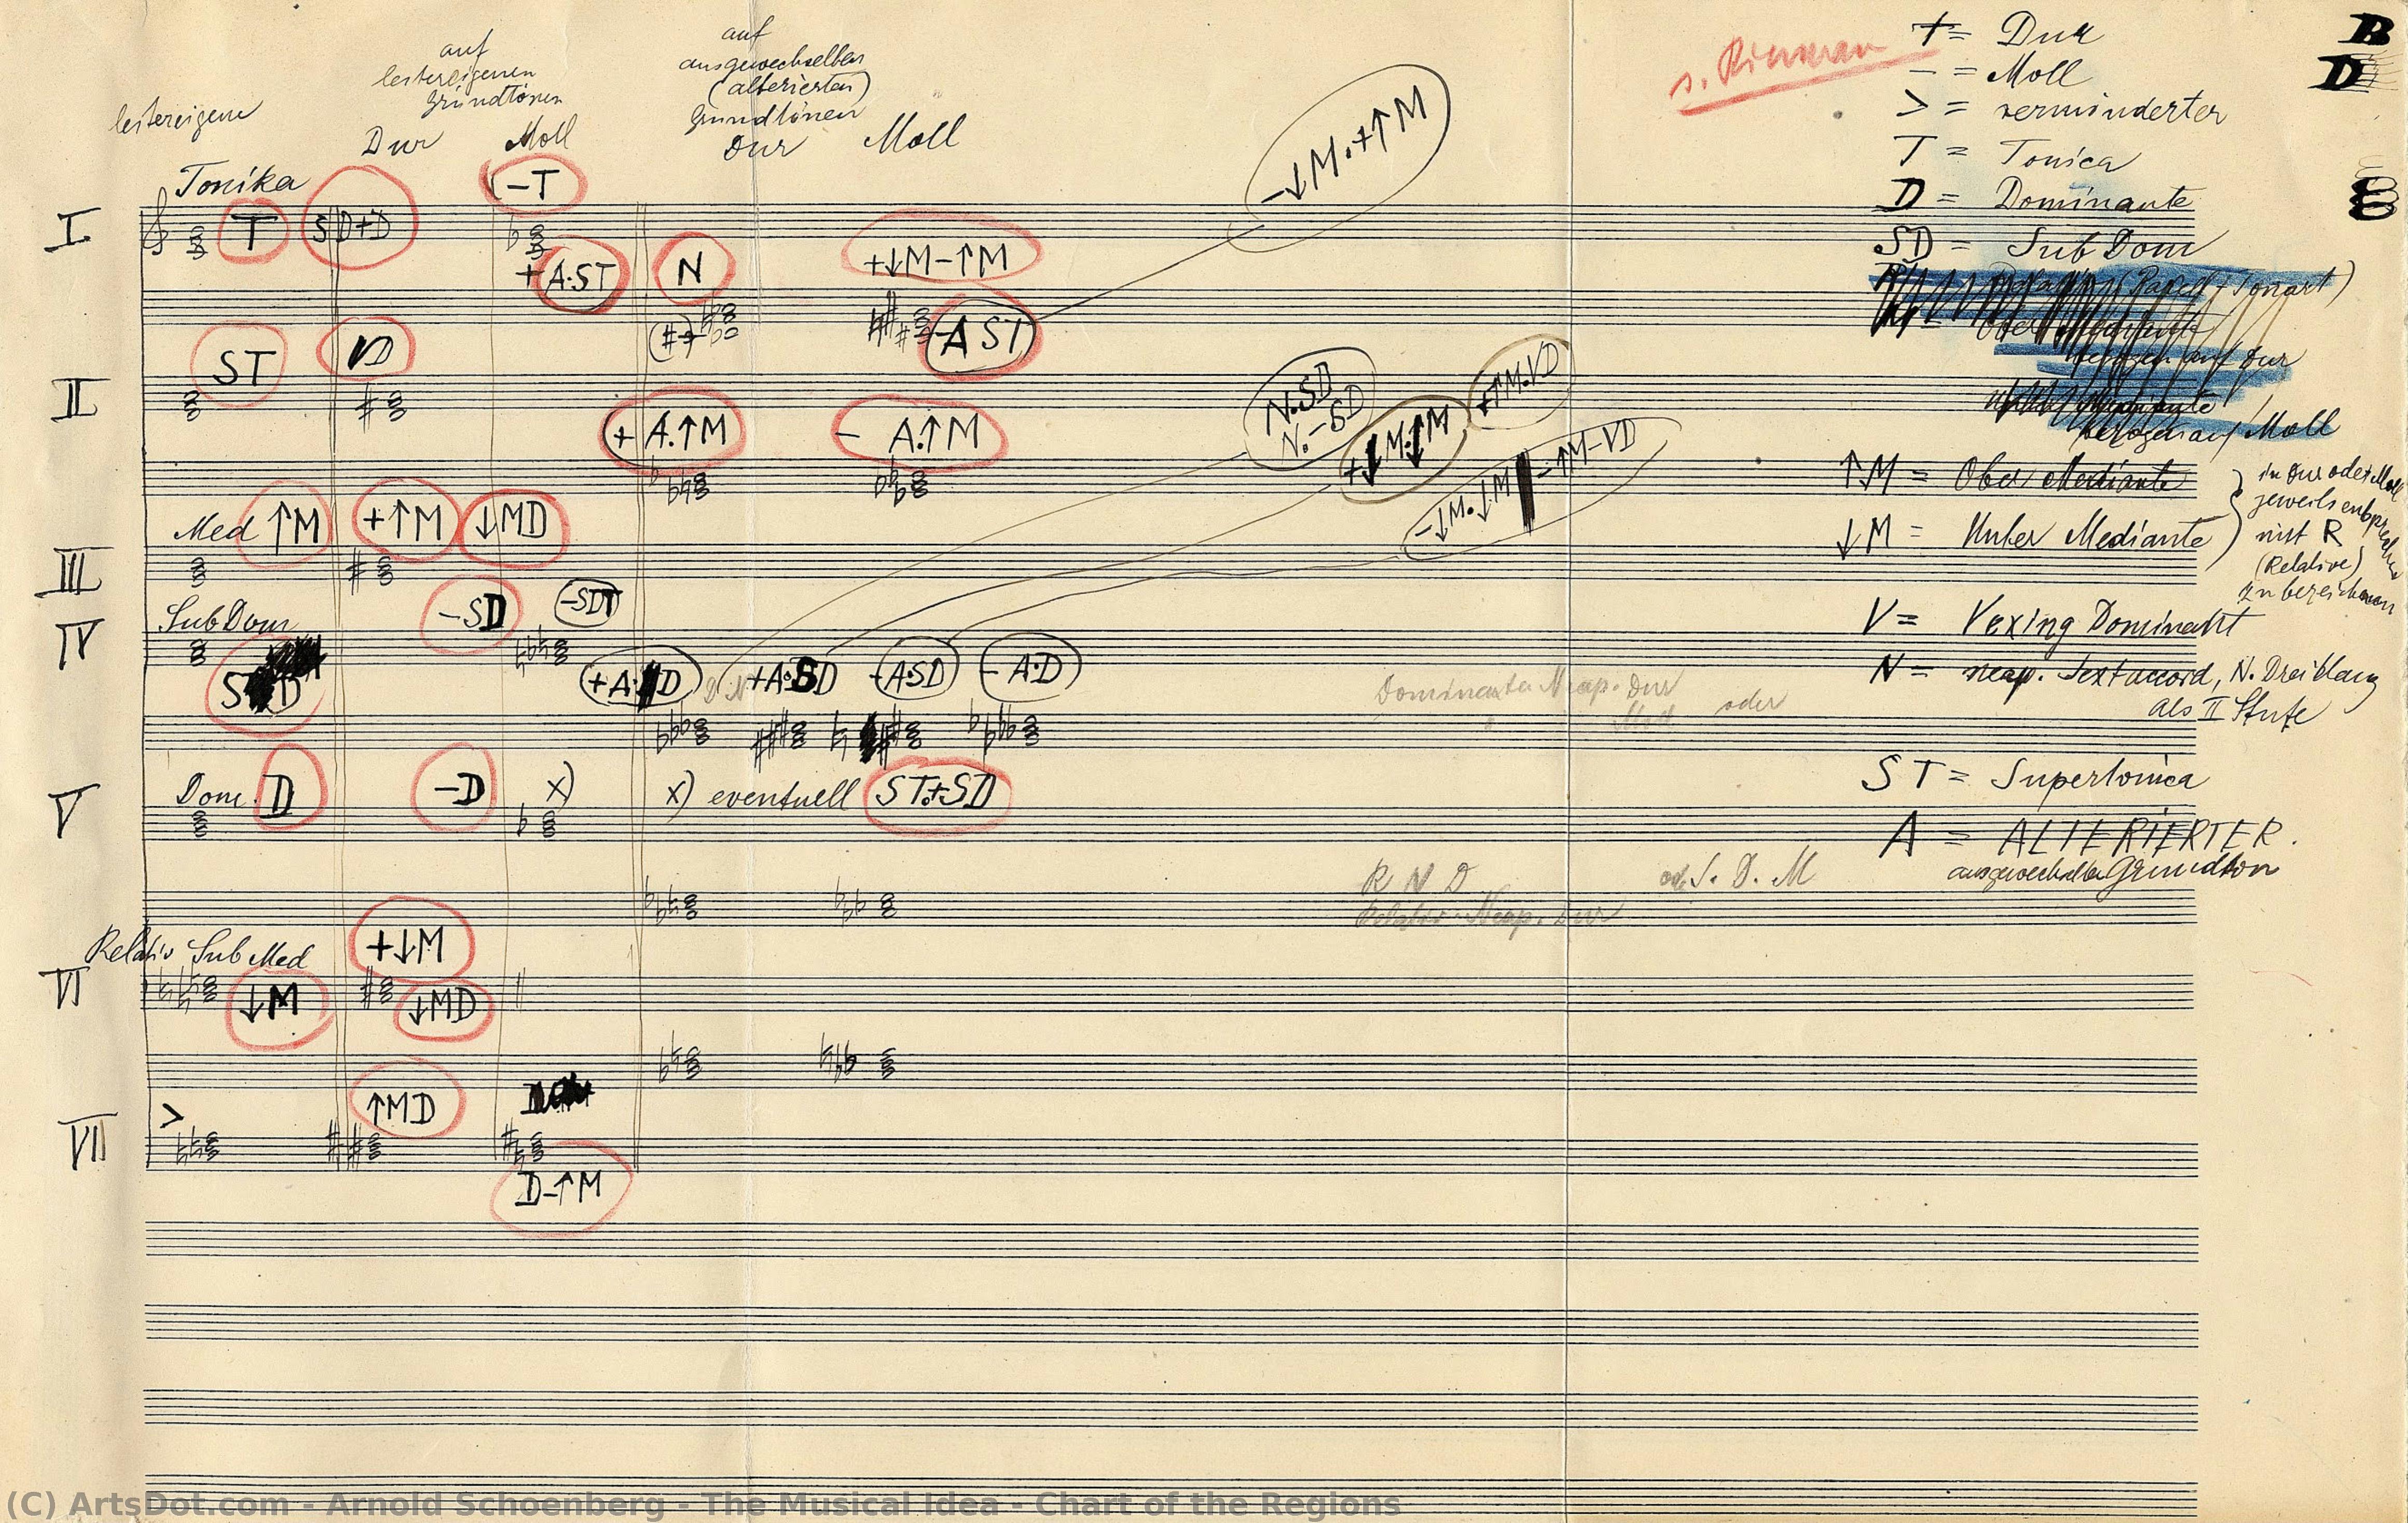 auf
lestereigenen
Grundtönen
auf
ausgewechselten
(alterierten)
Grundtönen
lestereigene
Dur
Moll
Dur
Moll
-↓M.+↑M
+ = Dur
- = Moll
> = verminderter
T = Tonica
D = Dominante
SD = SubDom
B
D
I
Tonika
T
SD+D
-T
+A.ST
N
+↓M-↑M
-AST
II
ST
VD
+A.↑M
- A.↑M
N.SD
N.-SD
+↓M.↑M
+↑M.VD
-↓M.↓M
-↑M-VD
bezogen auf Dur
bezogen auf Moll
↑M = Ober Mediante
↓M = Unter Mediante
in Dur oder Moll
jeweils entsprechend
mit R
(Relative)
zu bezeichnen
III
Med ↑M
+↑M
↓MD
IV
SubDom
SD
-SD
-SDT
+A.D
+A.SD
-A.SD
-A.D
Dominante Neap. Dur
oder
Moll
V = Vexing Dominant
N = neap. Sextaccord, N. Dreiklang
als II Stufe
V
Dom. D
-D
x)
x) eventuell ST.+SD
ST = Supertonica
A = ALTERIERTER.
ausgewechselter Grundton
R N D
od. S. D. M
Relativ Neap. Dur
VI
Relativ SubMed
↓M
+↓M
↓MD
VII
>
↑MD
D-↑M
(C) ArtsDot.com - Arnold Schoenberg - The Musical Idea - Chart of the Regions